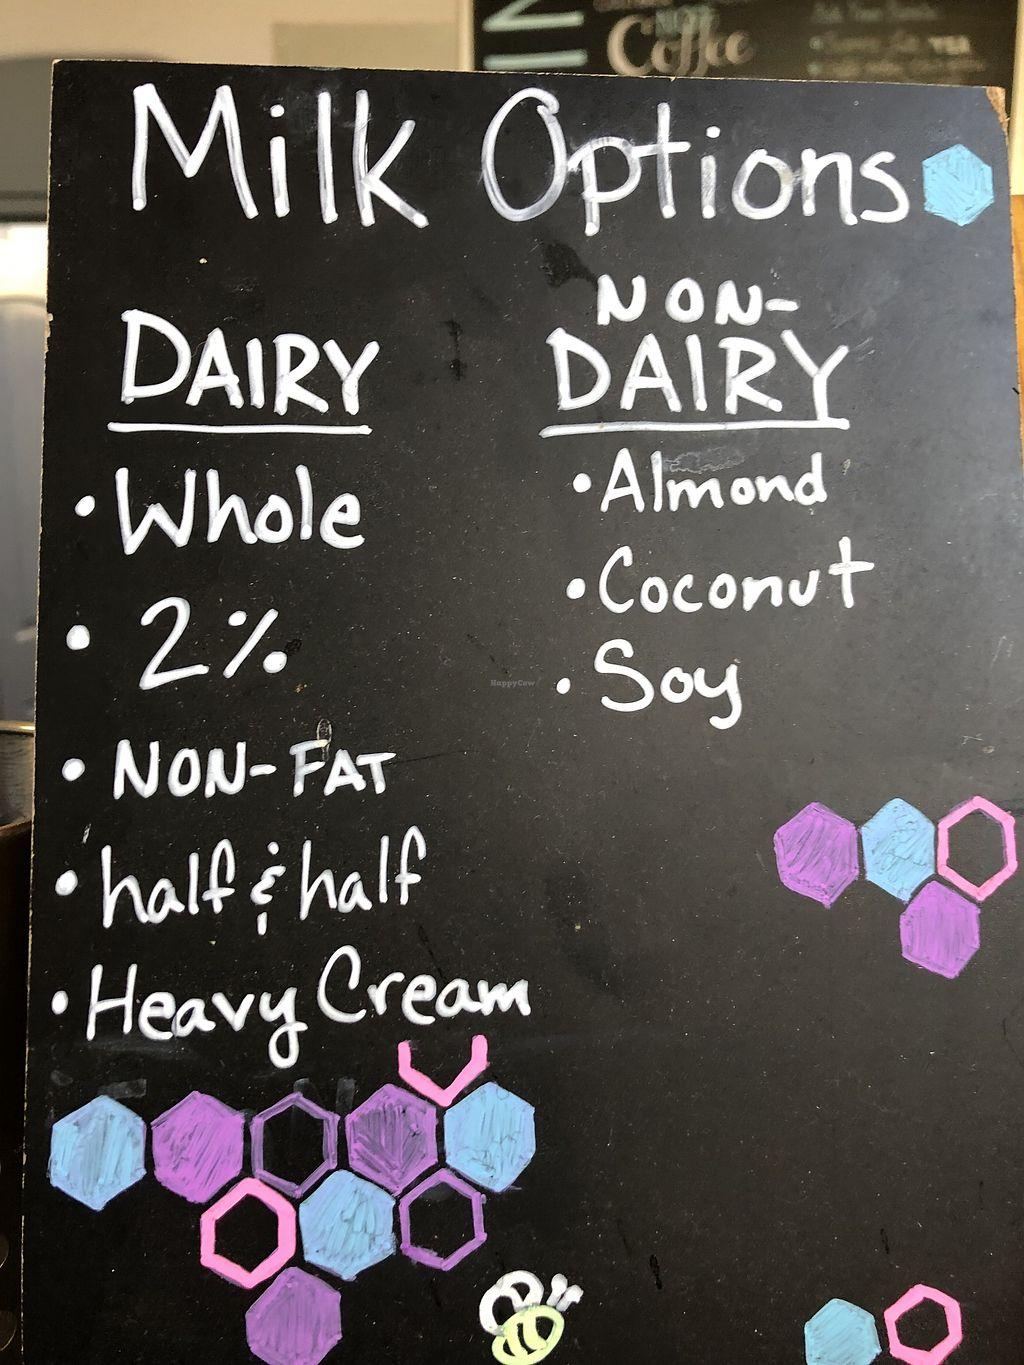 Coffee
TEA
Milk Options
DAIRY
• Whole
• 2%
• NON-FAT
• half & half
• Heavy Cream
NON-
DAIRY
• Almond
• Coconut
• Soy
HappyCow